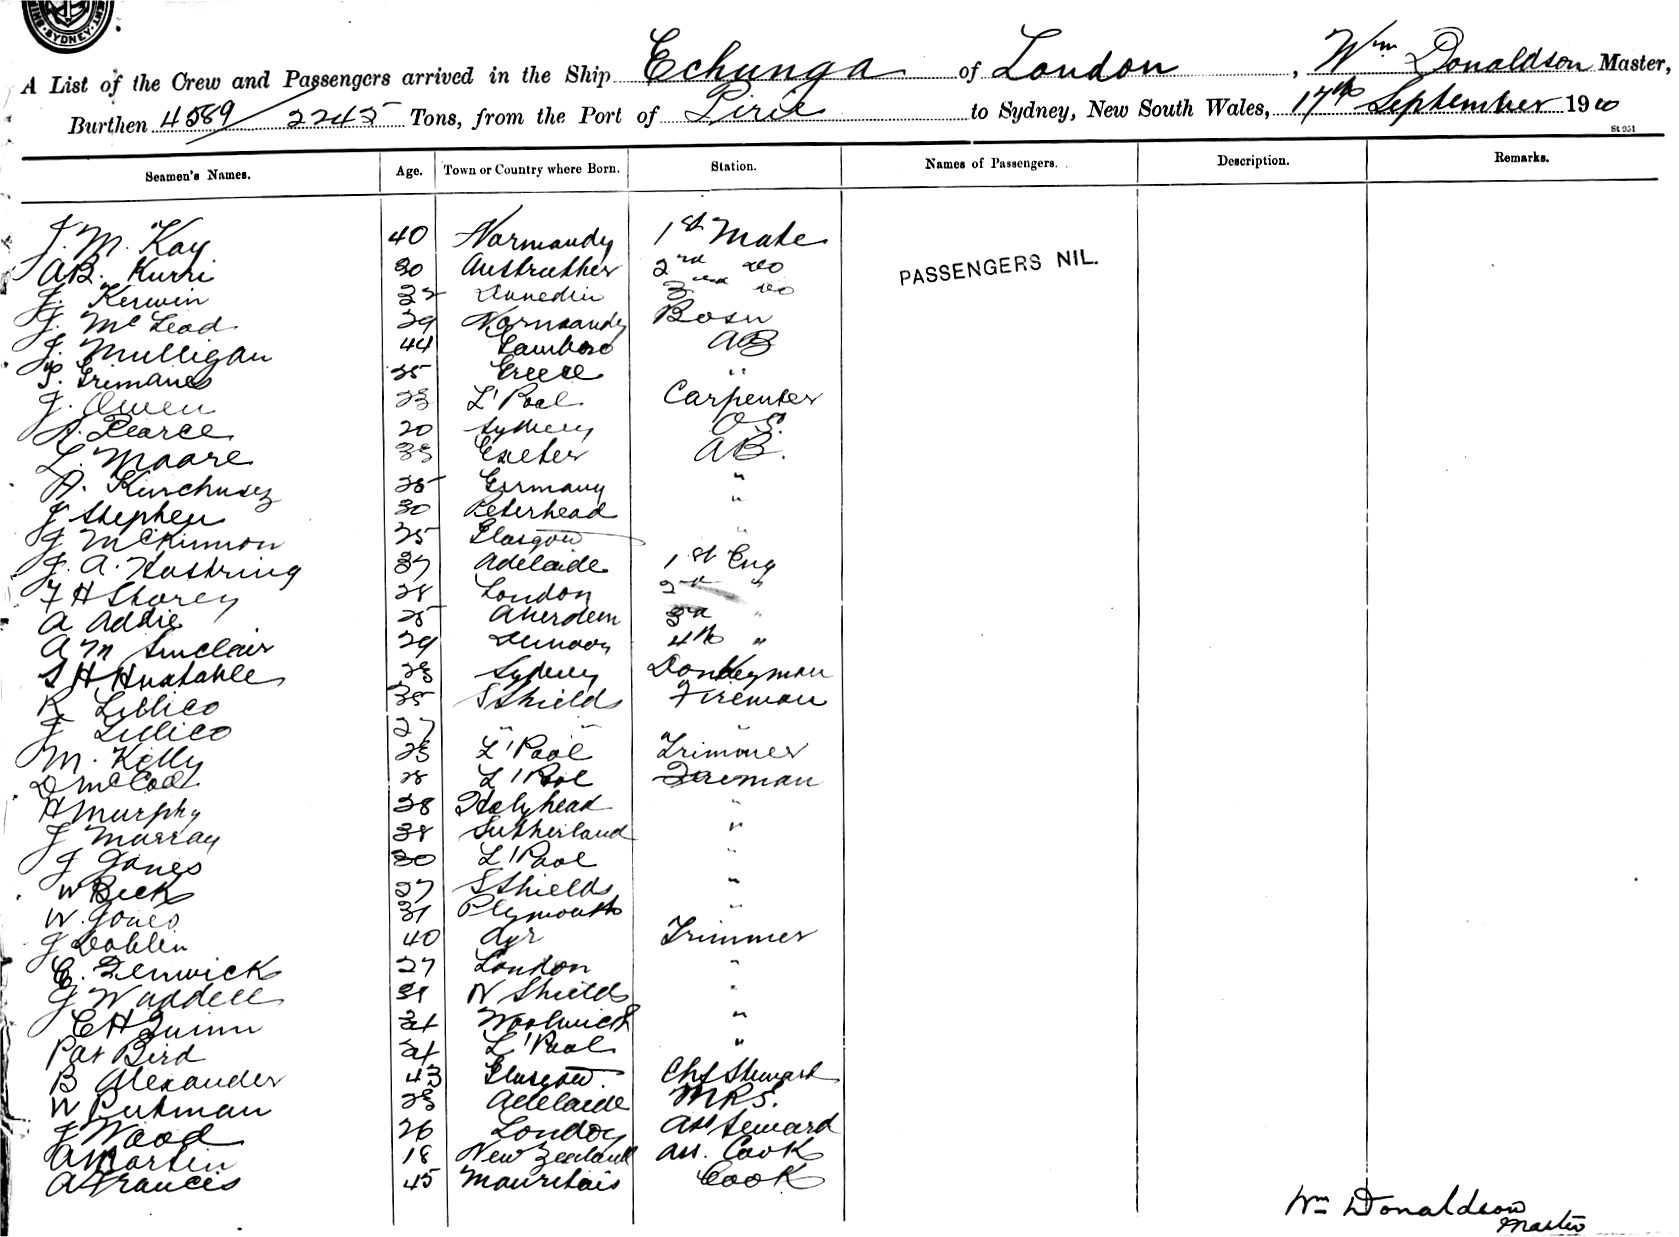 SYDNEY
A List of the Crew and Passengers arrived in the Ship Echunga of London, Wm Donaldson Master,
Burthen 4589/2245 Tons, from the Port of Pirie to Sydney, New South Wales, 17th September 19
St 951
Seamen's Names. Age. Town or Country where Born. Station. Names of Passengers. Description. Remarks.
J. M. Kay 40 Normandy 1st Mate
A.B. Kurri 30 Anstruther 2nd do PASSENGERS NIL.
J. Kerwin 32 Dunedin 3rd do
J. McLeod 29 Normandy Bosn
J. Mulligan 44 AB
Grimanes 25 Greece "
J. Owen 23 L'Pool Carpenter
A. Pearce 20 Sydney O.S.
L. Moore 33 Exeter AB.
A. 25 Germany "
J Stephen 30 Peterhead "
J McKinnon 25 Glasgow "
J. A. Hostring 37 Adelaide 1st Eng
F H Storey 28 London 2nd "
A Addie 25 Aberdeen 3rd "
A M Sinclair 29 Dunoon 4th "
S H Huxtable 23 Sydney Donkeyman
R Lillico 35 S Shields Fireman
J Lillico 27 " " "
M. Kelly 23 L'Pool Trimmer
D McCool 28 L'Pool Fireman
H Murphy 28 Holyhead "
J Murray 38 Sutherland "
J Jones 30 L'Pool "
W Beck 27 S Shields "
W. Jones 31 Plymouth "
J Doblin 40 Ayr Trimmer
E. Fenwick 27 London "
J Waddell 31 N Shields "
C H Quinn 34 Woolwich "
Pat Bird 24 L'Pool "
B Alexander 43 Glasgow. Chf Steward
W Putman 23 Adelaide M.R.S.
J Wood 26 London Ass Steward
A Martin 18 New Zealand Ass. Cook
A Francis 45 Mauritais Cook
Wm Donaldson
Master